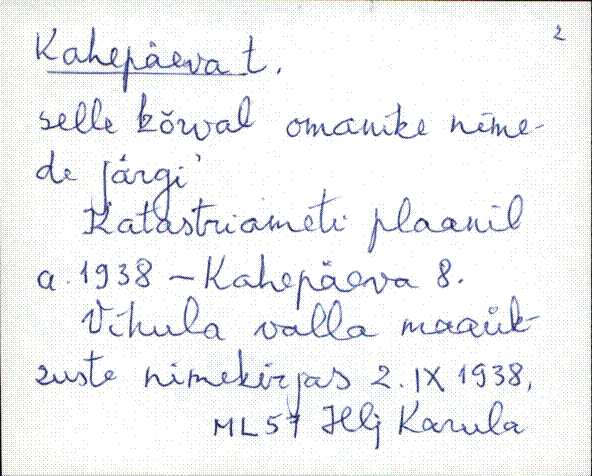 2
Kahepäeva t.
selle kõrval omanike nime-
de järgi
Katastriameti plaanil
a. 1938 – Kahepäeva 8.
Vihula valla maaük-
suste nimekirjas 2. IX 1938,
ML 57 Hlj Karula